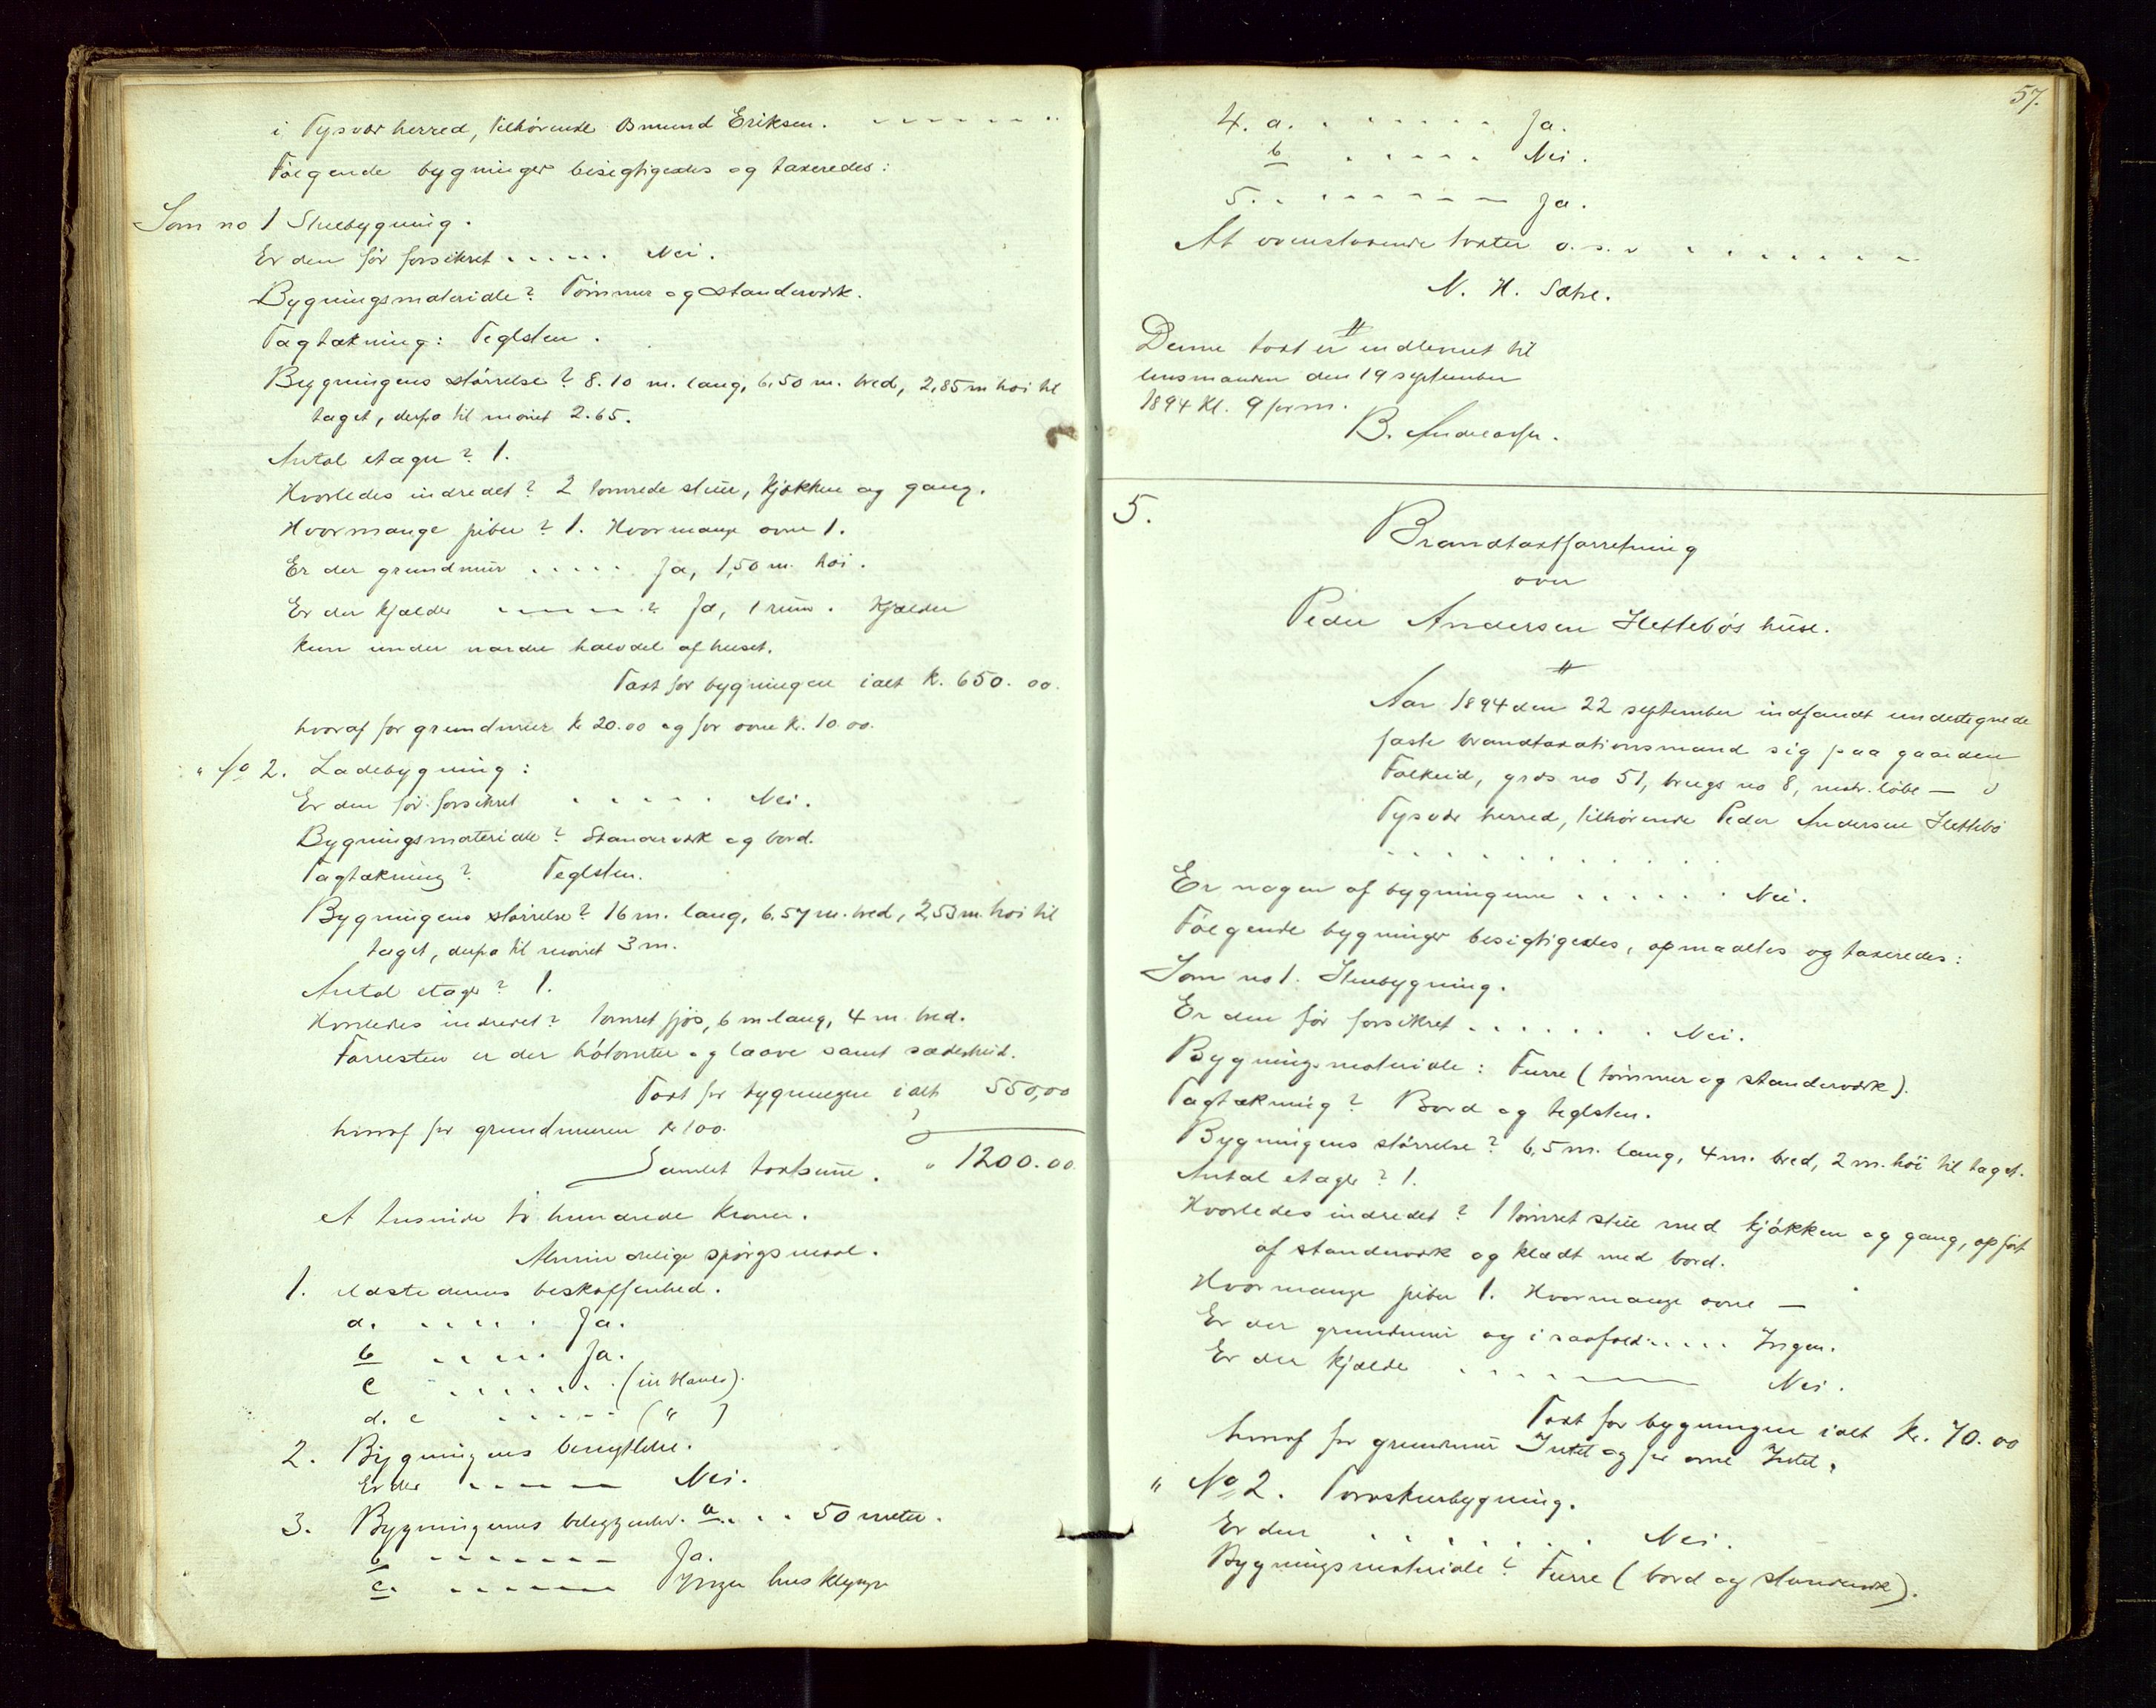 i Tysvær herred, tilhørende Amund Eriksen. - - - - - -
Følgende bygninger besigtigedes og taxeredes:
Som no 1 Stuebygning.
Er den før forsikret . . . . . Nei.
Bygningsmateriale? Tømmer og standerværk.
Tagtækning: Teglsten.
Bygningens størrelse? 8.10 m. lang, 6,50 m. bred, 2,85 m høi til
taget, derfra til mønet 2.65.
Antal etager? 1.
Hvorledes indredet? 2 tømrede stuer, kjøkken og gang.
Hvormange piber? 1. Hvormange ovne 1.
Er der grundmur . . . . . Ja, 1,50 m. høi.
Er der kjælder - - - - - ? Ja, 1 rum. Kjælder
kun under nordre halvdel af huset.
Taxt for bygningen ialt k. 650.00.
hvoraf for grundmur kr 20.00 og for ovne kr. 10.00.
" No 2. Ladebygning:
Er den før forsikret . . . . . Nei.
Bygningsmateriale? Standerværk og bord.
Tagtækning? Teglsten.
Bygningens størrelse? 16 m. lang, 6,57 m. bred, 2,53 m. høi til
taget, derfra til mønet 3 m.
Antal etager? 1.
Hvorledes indredet? tømret fjøs, 6 m lang, 4 m. bred.
Forresten er der høtomter og laave samt
Taxt for bygningen ialt 550,00
hvoraf for grundmuren kr 100.
Samlet taxtsum. " 1200.00.
et tusinde to hundrede kroner.
Almindelige spørgsmaal.
1. Ildstedernes beskaffenhed.
a. . . . . . Ja.
b . . . . . Ja.
c . . . . . . . (in blanco).
d. e . . . . . . ( " )
2. Bygningens benyttelse.
Er der - - - - - Nei.
3. Bygningernes beliggenhed. a. . . . 50 meter.
b - - - - - - - Ja.
c. - - - - - - - Ingen husklynge
57.
4. a. . . . . . . Ja.
b . . . . . Nei.
5. . - - - - - - - Ja.
At ovenstaaende taxter o.s.v . . . . . . . .
N. H. Sætre.
Denne taxt er indleveret til
lensmanden den 19 september
1894 Kl. 9 form.
B. Andreassen.
5.
Brandtaxtforretning
over
Peder Andersen Hettebøs huse.
Aar 1894 den 22 september indfandt undertegnede
faste brandtaxationsmand sig paa gaarden
Falkeid, grds no 51, brugs no 8, matr. løbe — i
Tysvær herred, tilhørende Peder Andersen Hettebø
. . . . . . . . . . .
Er nogen af bygningerne . . . . . . Nei.
Følgende bygninger besigtigedes, opmaaltes og taxeredes:
Som no 1. Stuebygning.
Er den før forsikret . . . . . . . Nei.
Bygningsmateriale: Furre (tømmer og standerværk).
Tagtækning? Bord og teglsten.
Bygningens størrelse? 6,5 m. lang, 4 m. bred, 2 m. høi til taget.
Antal etager? 1.
Hvorledes indredet? 1 tømret stue med kjøkken og gang, opført
af standerværk og klædt med bord.
Hvormange piber 1. Hvormange ovne —
Er der grundmur og i saafald . . . . . Ingen.
Er der kjælder . - - - - - - Nei.
Taxt for bygningen ialt kr. 70.00
hvoraf for grundmur Intet og for ovne Intet.
" No 2. Torvskurbygning.
Er den . . . . . . . Nei.
Bygningsmateriale? Furre (bord og standerværk).